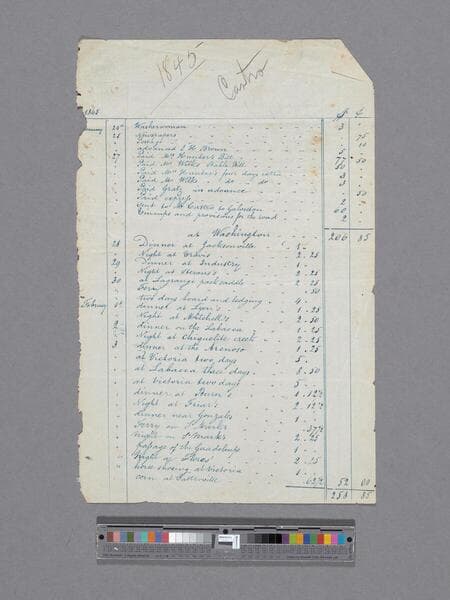 1845
Castro
1845
$ c
24 Washerwoman 3 .
25 newspapers 75
Postage 10
advanced S. H. Brown 5
27 Paid Mrs Hunter's Bill 77 50
Paid Mr Wells' Bill 50
Paid Mrs Hunter's four days extra 3
Paid Mr Wells do do 3
Paid Gratz in advance 50
Paid express 2
Sent to Mr Castro to Galveston 60
Tincups and provisions for the road 2
at Washington 206 85
28 Dinner at Jacksonville 1 .
Night at 2 . 25
29 Dinner at Industry 1 .
Night at 2 . 25
30 at Lagrange packsaddle 2 . 25
Ferry . 50
two days board and lodging 4 .
February 1st dinner at Lyon's 1 . 25
Night at Mitchell's 2 . 50
2 dinner on the Labacca 1 . 25
Night at Chiquelite creek 2 . 25
3 dinner at the Arenoso 1 . 25
at Victoria two days 5 .
at Labacca three days 8 . 50
at Victoria two days 5
dinner at 1 . 12½
Night at Friar's 2 . 12½
dinner near Gonzales 1
Ferry on . 37½
Night on St Marks 2 . 25
Passage of the Guadeloupe 1
Night at Flores' 2 . 25
horse shoeing at Victoria 1
corn at . 62½ 52 00
258 85